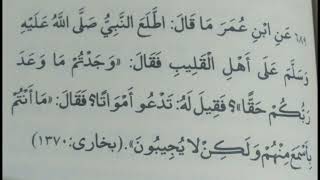 ٦٨٩ عَنِ ابْنِ عُمَرَ مَا قَالَ: اطَّلَعَ النَّبِيُّ صَلَّى اللَّهُ عَلَيْهِ
وَسَلَّمَ عَلَى أَهْلِ الْقَلِيبِ فَقَالَ: «وَجَدْتُمْ مَا وَعَدَ
رَبُّكُمْ حَقًّا»؟ فَقِيلَ لَهُ: تَدْعُو أَمْوَاتًا؟ فَقَالَ: «مَا أَنْتُمْ
بِأَسْمَعَ مِنْهُمْ وَلَكِنْ لَا يُجِيبُونَ». (بخاری: ١٣٧٠)